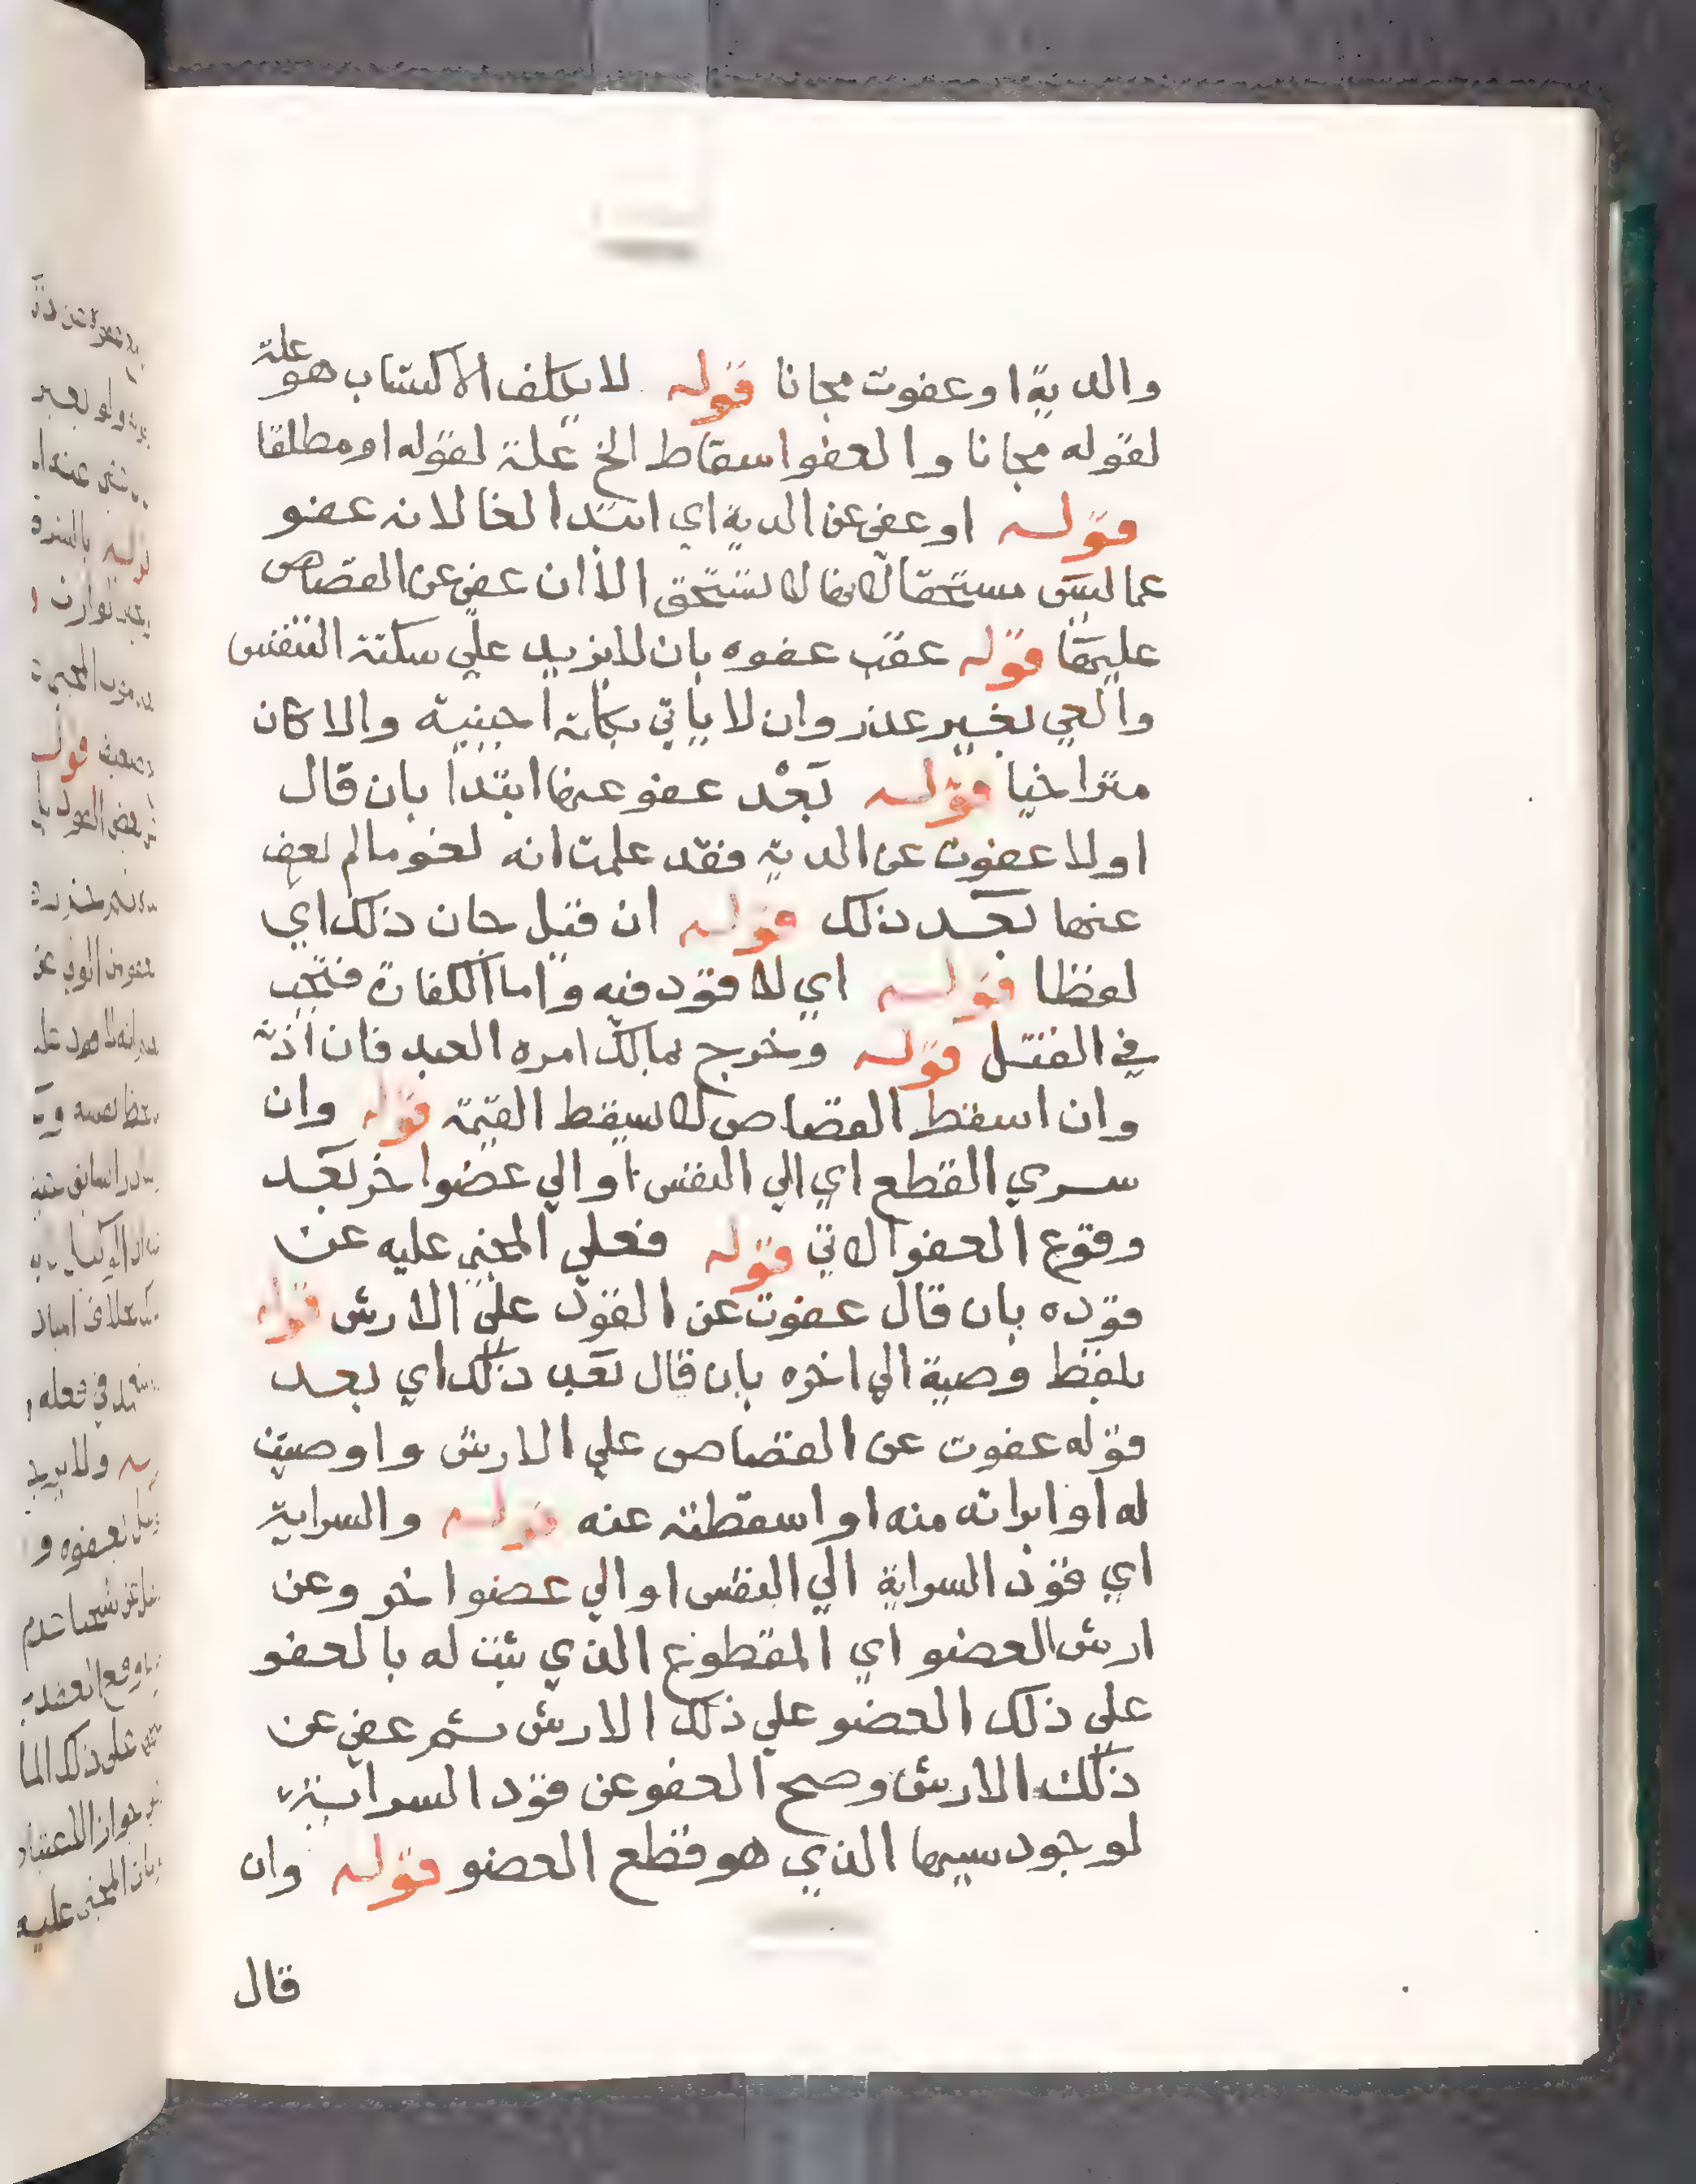 والدية او عفوت مجانا قوله لا يكلف الاكتساب هو علة
لقوله مجانا والعفو اسقاط الخ علة لقوله او مطلقا
قوله او عفي عن الدية اي ابتدا لغا لانه عفو
عما ليس مستحقا لانها لا تستحق الا ان عفي عن القصاص
عليها قوله عقب عفوه بان لا يزيد علي سكتة التنفس
والعي بغير عذر وان لا ياتي بكلمة اجنبية والا كان
متراخيا قوله بعد عفو عنها ابتدا بان قال
اولا عفوت عن الدية فقد علمت انه لغو مالم يعف
عنها بعد ذلك قوله ان قتل جان ذلك اي
لفظا قوله اي لا قود فيه واما الكفارة فتجب
في القتل قوله وخرج بمالك امره العبد فان اذنه
وان اسقط القصاص لا يسقط القيمة قوله وان
سري القطع اي الي النفس او الي عضو اخر بعد
وقوع العفو الاتي قوله فعلي المجني عليه عن
قوده بان قال عفوت عن القود علي الارش قوله
بلفظ وصية الي اخره بان قال بعد ذلك اي بعد
قوله عفوت عن القصاص علي الارش واوصيت
له او ابراته منه او اسقطته عنه قوله والسراية
اي قود السراية الي النفس او الي عضو اخر وعن
ارش العضو اي المقطوع الذي ثبت له بالعفو
علي ذلك العضو علي ذلك الارش ثم عفي عن
ذلك الارش وصح العفو عن قود السراية
لوجود سببها الذي هو قطع العضو قوله وان
قال